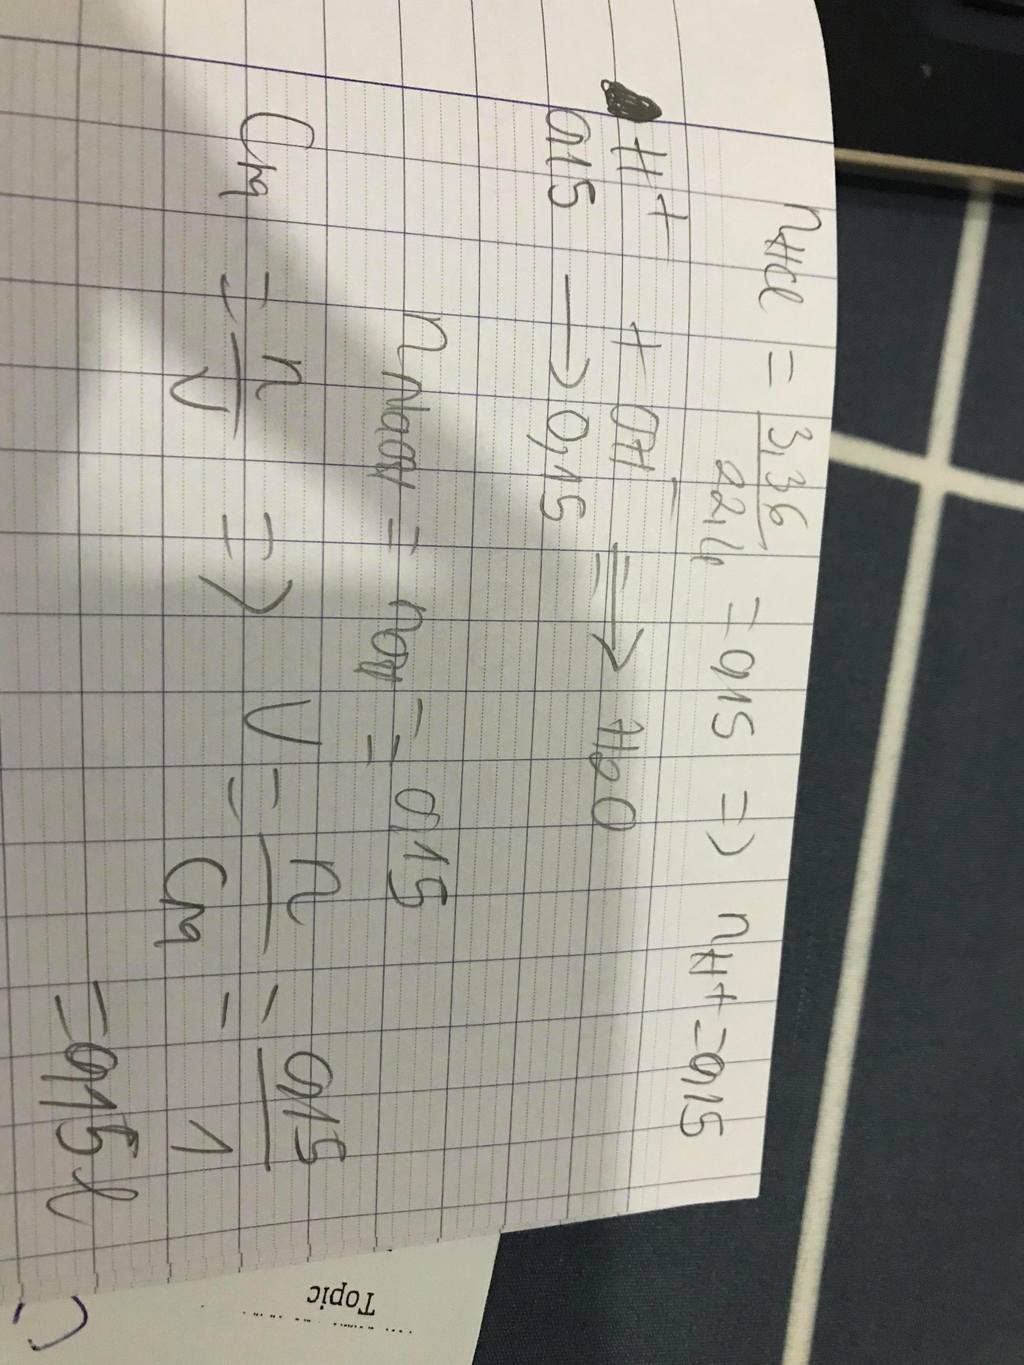 nHCl = 3,36/22,4 = 0,15 => nH+ = 0,15
H+ + OH- => H2O
0,15 -> 0,15
nNaOH = nOH = 0,15
CM = n/V => V = n/CM = 0,15/1
= 0,15 l
Topic